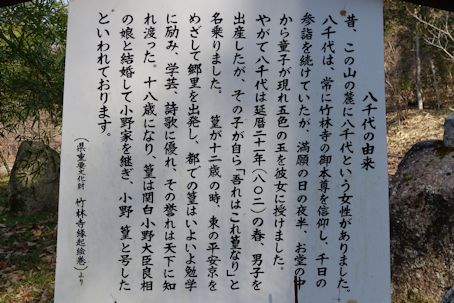 八千代の由来
昔、この山の麓に八千代という女性がありました。
八千代は、常に竹林寺の御本尊を信仰し、千日の
参詣を続けていたが、満願の日の夜半、お堂の中
から童子が現れ五色の玉を彼女に授けました。
やがて八千代は延暦二十一年(八〇二)の春、男子を
出産したが、その子が自ら「吾れはこれ篁なり」と
名乗りました。 篁が十二歳の時、東の平安京を
めざして郷里を出発し、都での篁はいよいよ勉学
に励み、学芸、詩歌に優れ、その誉れは天下に知
れ渡った。十八歳になり、篁は関白小野大臣良相
の娘と結婚して小野家を継ぎ、小野 篁と号した
といわれております。
(県重要文化財 竹林寺縁起絵巻)より